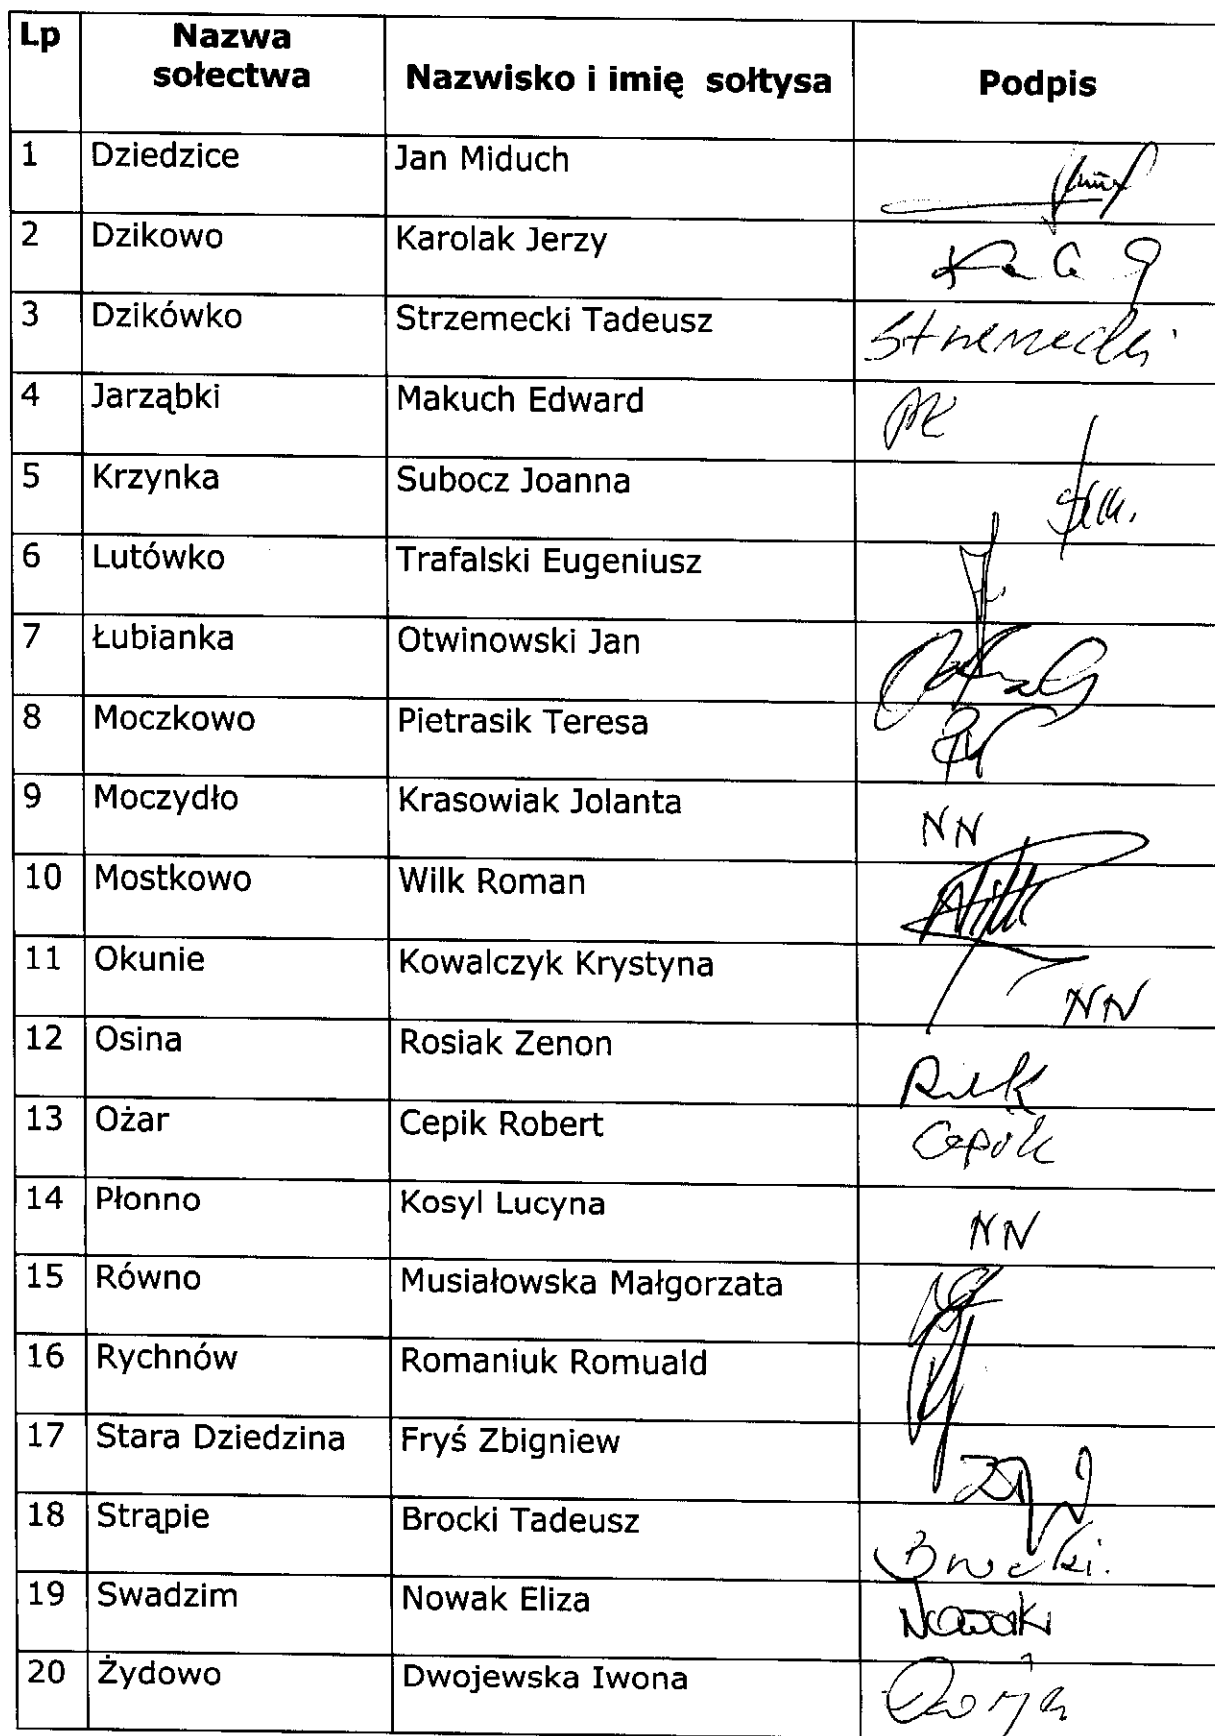 Lp Nazwa sołectwa Nazwisko i imię sołtysa Podpis
1 Dziedzice Jan Miduch
2 Dzikowo Karolak Jerzy
3 Dzikówko Strzemecki Tadeusz
4 Jarząbki Makuch Edward
5 Krzynka Subocz Joanna
6 Lutówko Trafalski Eugeniusz
7 Łubianka Otwinowski Jan
8 Moczkowo Pietrasik Teresa
9 Moczydło Krasowiak Jolanta NN
10 Mostkowo Wilk Roman
11 Okunie Kowalczyk Krystyna NN
12 Osina Rosiak Zenon
13 Ożar Cepik Robert Cepik
14 Płonno Kosyl Lucyna NN
15 Równo Musiałowska Małgorzata
16 Rychnów Romaniuk Romuald
17 Stara Dziedzina Fryś Zbigniew
18 Strąpie Brocki Tadeusz Brocki.
19 Swadzim Nowak Eliza Nowak
20 Żydowo Dwojewska Iwona